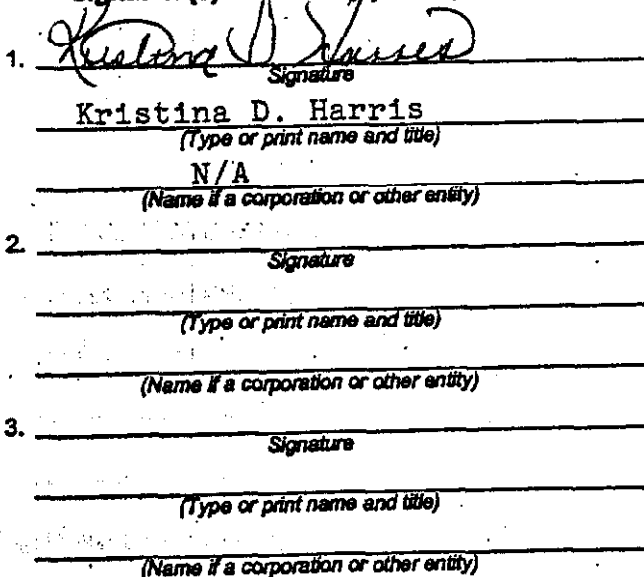 1. Kristina D Harris
Signature
Kristina D. Harris
(Type or print name and title)
N/A
(Name if a corporation or other entity)
2.
Signature
(Type or print name and title)
(Name if a corporation or other entity)
3.
Signature
(Type or print name and title)
(Name if a corporation or other entity)